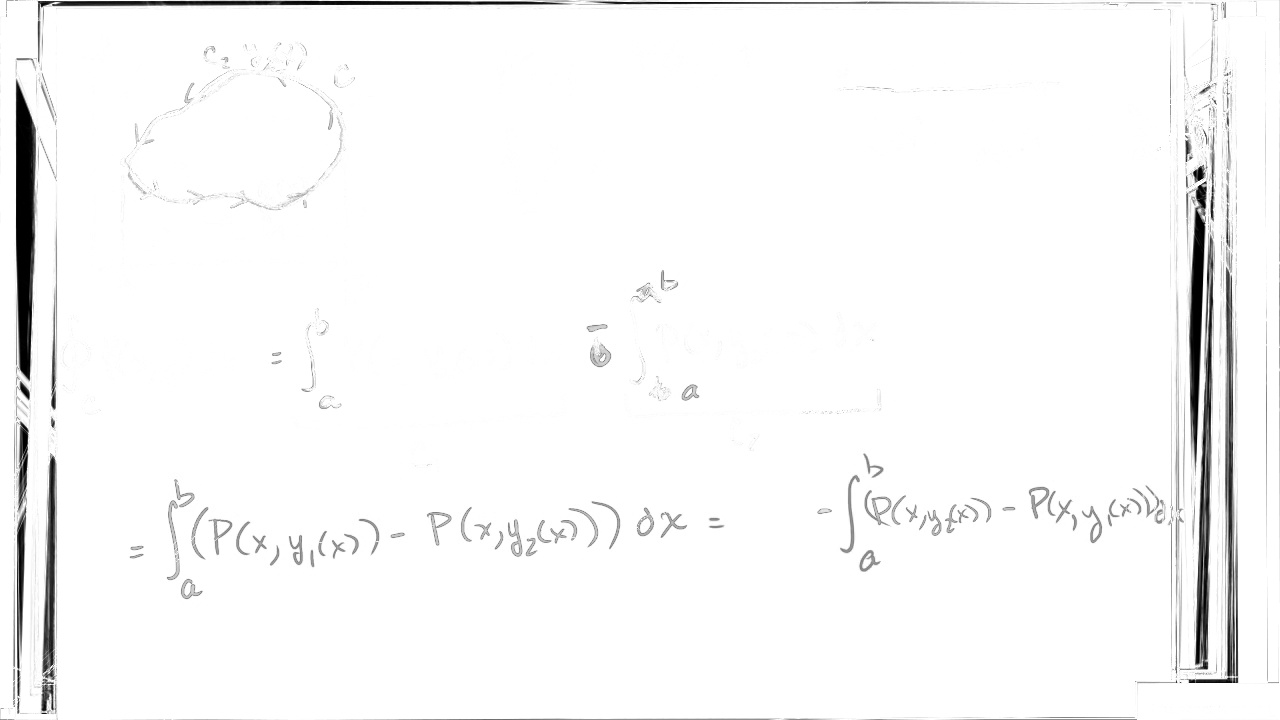 C₂ y₂(x) C
= ∫ₐᵇ - ∫ₐᵇ
= ∫ₐᵇ (P(x, y₁(x)) - P(x, y₂(x))) dx = - ∫ₐᵇ (P(x, y₂(x)) - P(x, y₁(x))) dx